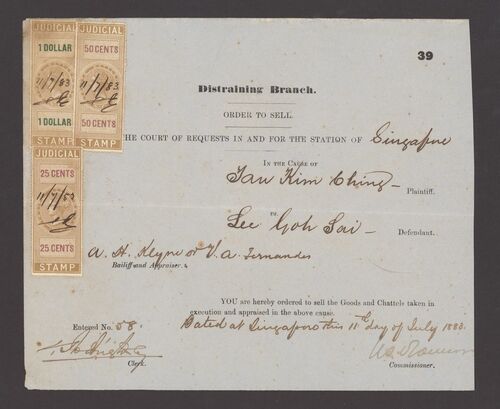 JUDICIAL
1 DOLLAR
11/7/83
1 DOLLAR
STAMP
JUDICIAL
50 CENTS
11/7/83
50 CENTS
STAMP
JUDICIAL
25 CENTS
11/7/83
25 CENTS
STAMP
39
Distraining Branch.
ORDER TO SELL.
THE COURT OF REQUESTS IN AND FOR THE STATION OF Singapore
IN THE CAUSE OF
Tan Kim Ching
Plaintiff.
vs.
Lee Goh Sai
Defendant.
A. H. Kleyne or V. A. Fernandes
Bailiff and Appraiser.
YOU are hereby ordered to sell the Goods and Chattels taken in
execution and appraised in the above cause.
Entered No. 58.
Dated at Singapore this 11th day of July 1883.
Clerk.
Commissioner.